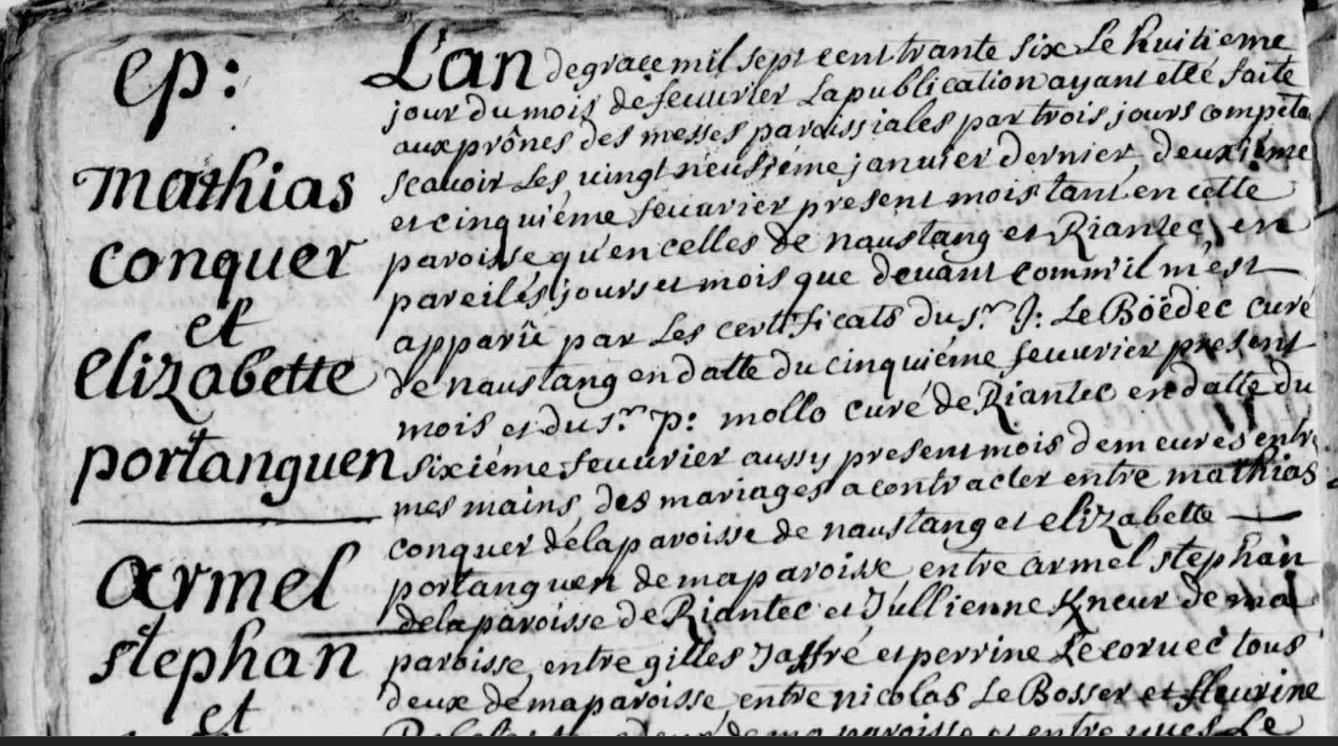 ep:
mathias
conquer
et
elizabette
portanguen
armel
stephan
et
L'an de grace mil sept cent trante six Le huitieme
jour du mois de feuurier La publication ayant etté faite
aux prônes des messes paroissiales par trois jours
scauoir Les uingt neufiéme januier dernier, deuxiéme
et cinquiéme feuurier present mois tant en cette
paroisse qu'en celles de naustang et Riantec, en
pareilés jours et mois que deuant comm'il m'est
apparû par Les certificats du sr. J: Le Böédec curé
de naustang en datte du cinquiéme feuurier present
mois et du sr. p: mollo curé de Riantec en datte du
sixiéme feuurier aussy present mois demeurés entre
mes mains, des mariages a contracter entre mathias
conquer de la paroisse de naustang et elizabette
portanguen de ma paroisse entre armel stephan
de la paroisse de Riantec et Jullienne Kneur de ma
paroisse, entre gilles Jaffré et perrine Le coruec tous
deux de ma paroisse, entre nicolas Le Bosser et fleurine
deux de ma paroisse et entre yues Le